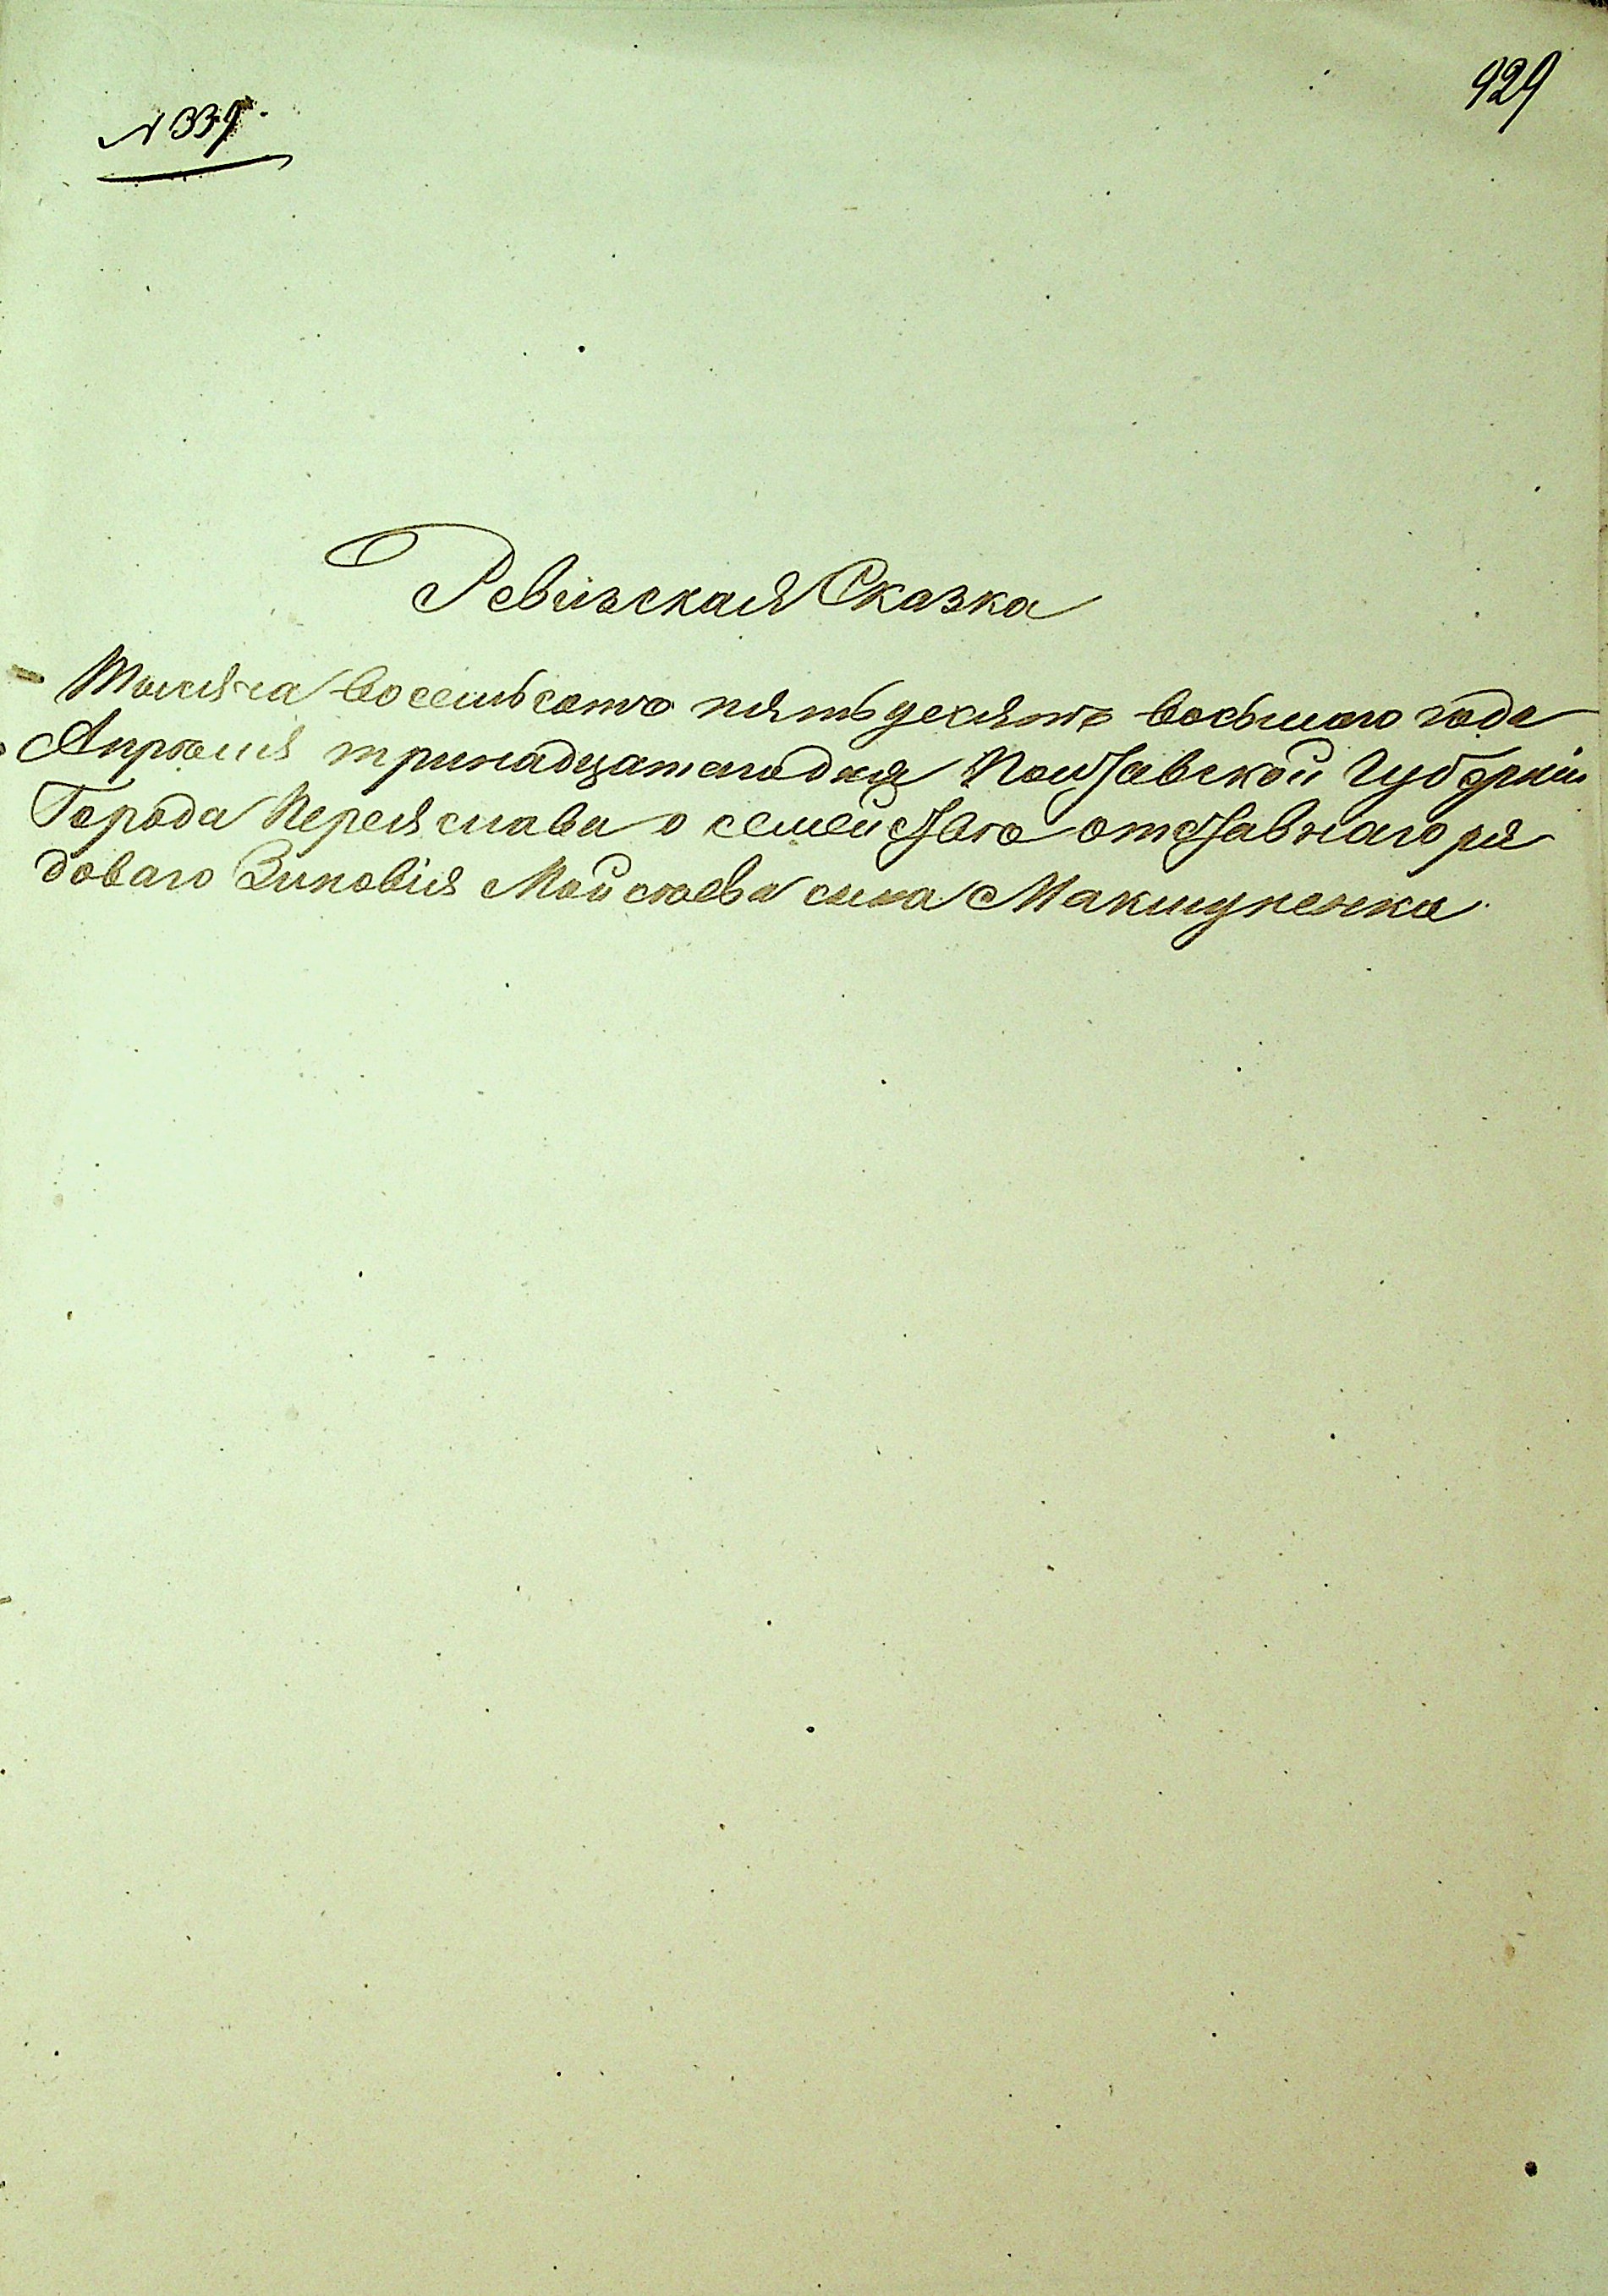 929
№ 337.
Ревизская Сказка
Тысяча восемьсотъ пятьдесятъ восьмаго года
Апрѣля тринадцатаго дня Полтавской Губерніи
Города Переяслава о семействѣ отставнаго ря
доваго Зиновія Мойсѣева сына